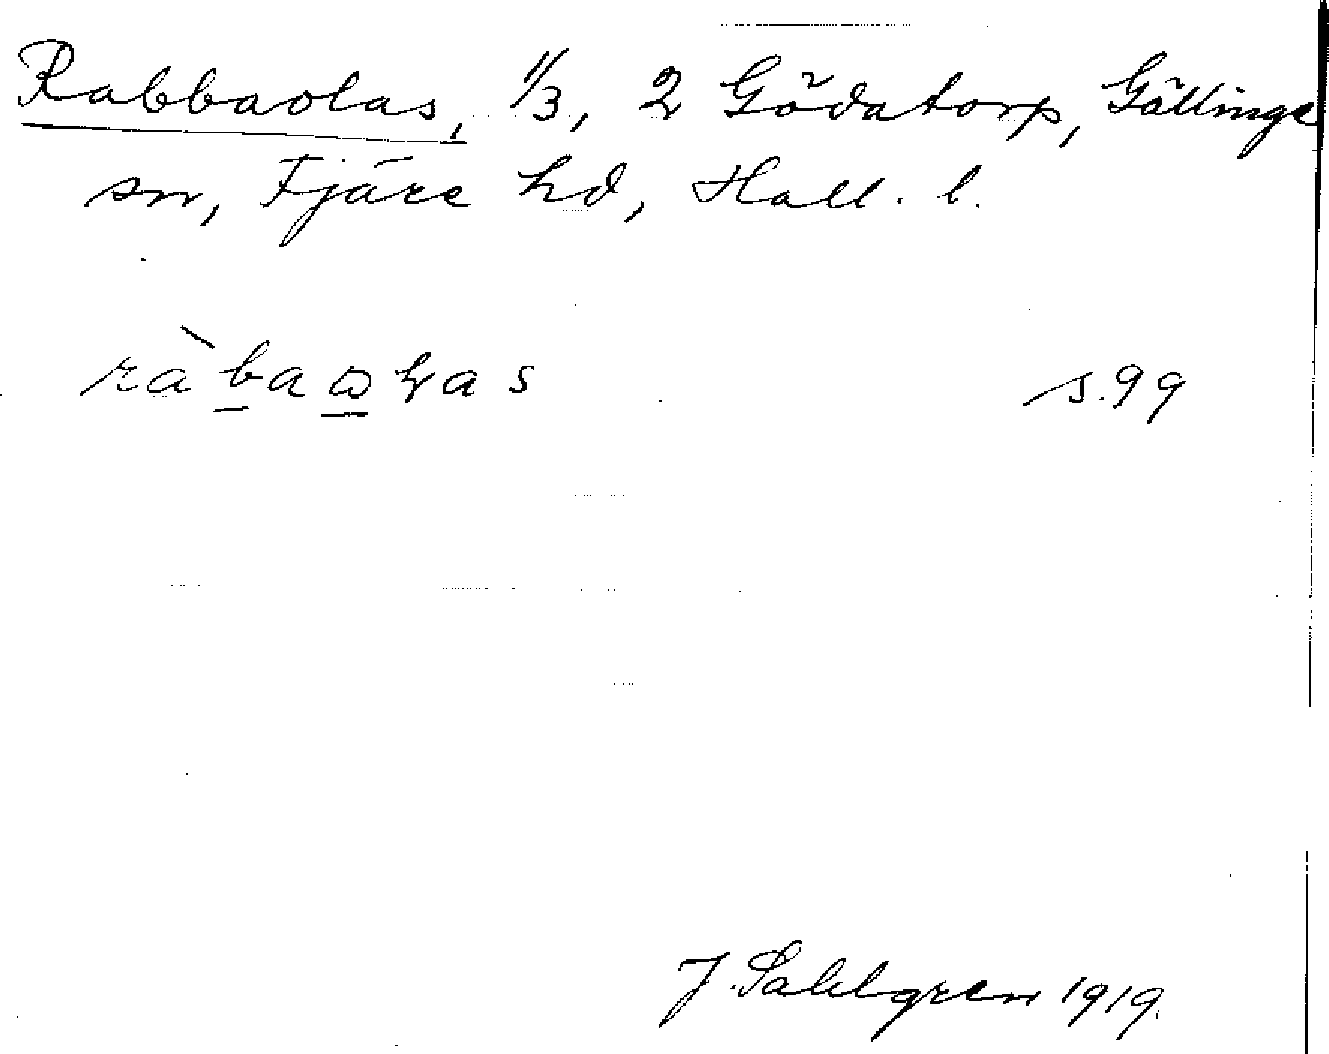 Rabbaolas, 1/3, 2 Gödatorp, Gällinge
sn, Fjäre hd, Hall. l.
s. 99
J. Sahlgren 1919.